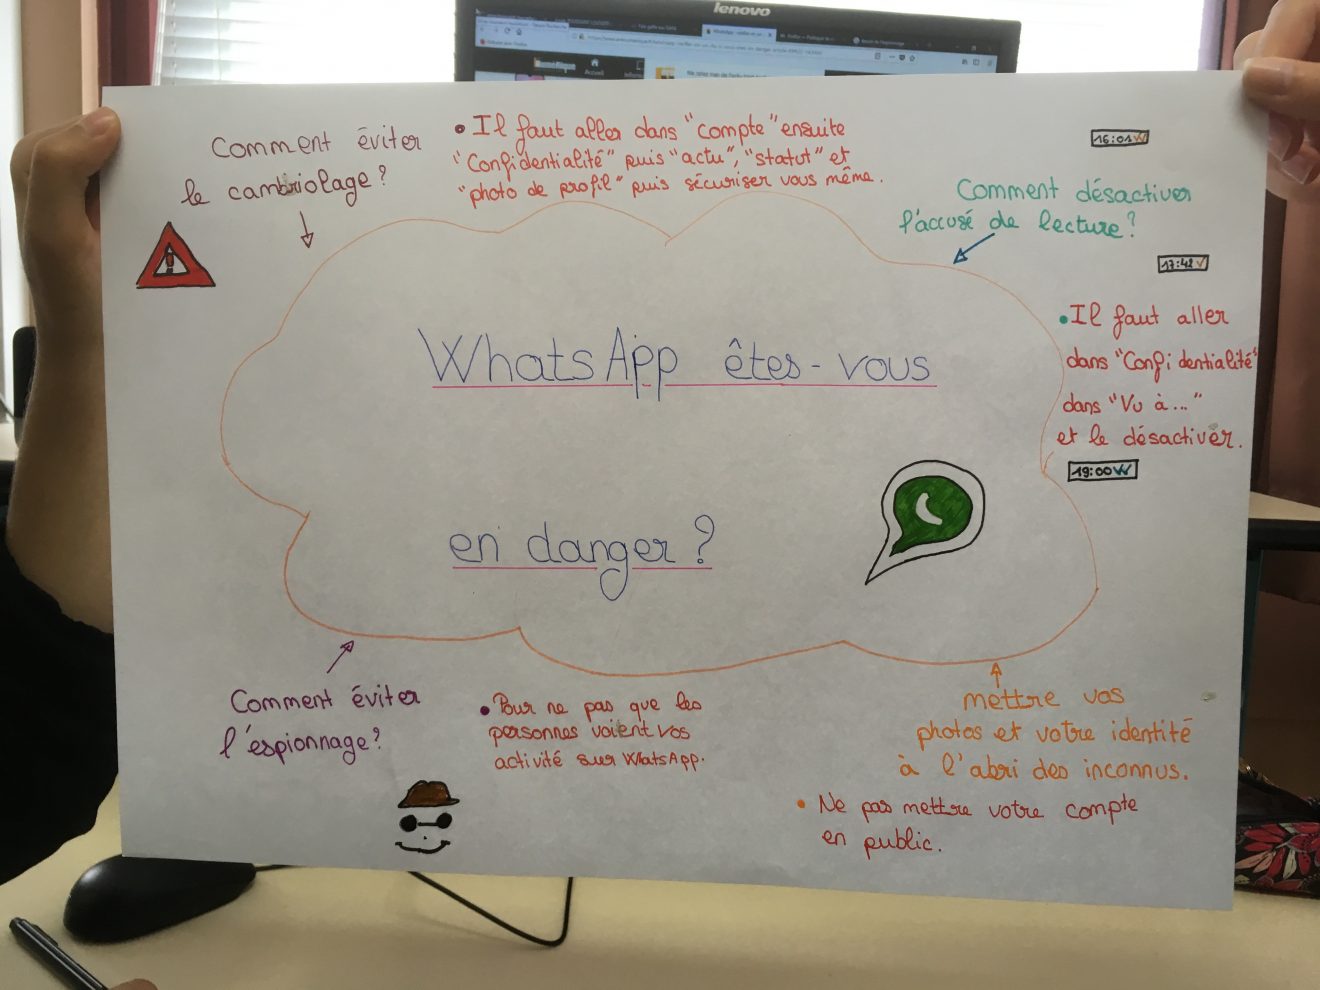 lenovo
Comment éviter
le cambriolage?
• Il faut aller dans "compte" ensuite
"Confidentialité" puis "actu", "statut" et
"photo de profil" puis sécuriser vous même.
16:01
Comment désactiver
l'accusé de lecture?
17:42
• Il faut aller
dans "Confidentialité"
dans "Vu à..."
et le désactiver.
19:00
WhatsApp êtes-vous
en danger?
Comment éviter
l'espionnage?
• Pour ne pas que les
personnes voient vos
activité sur WhatsApp.
mettre vos
photos et votre identité
à l'abri des inconnus.
• Ne pas mettre votre compte
en public.